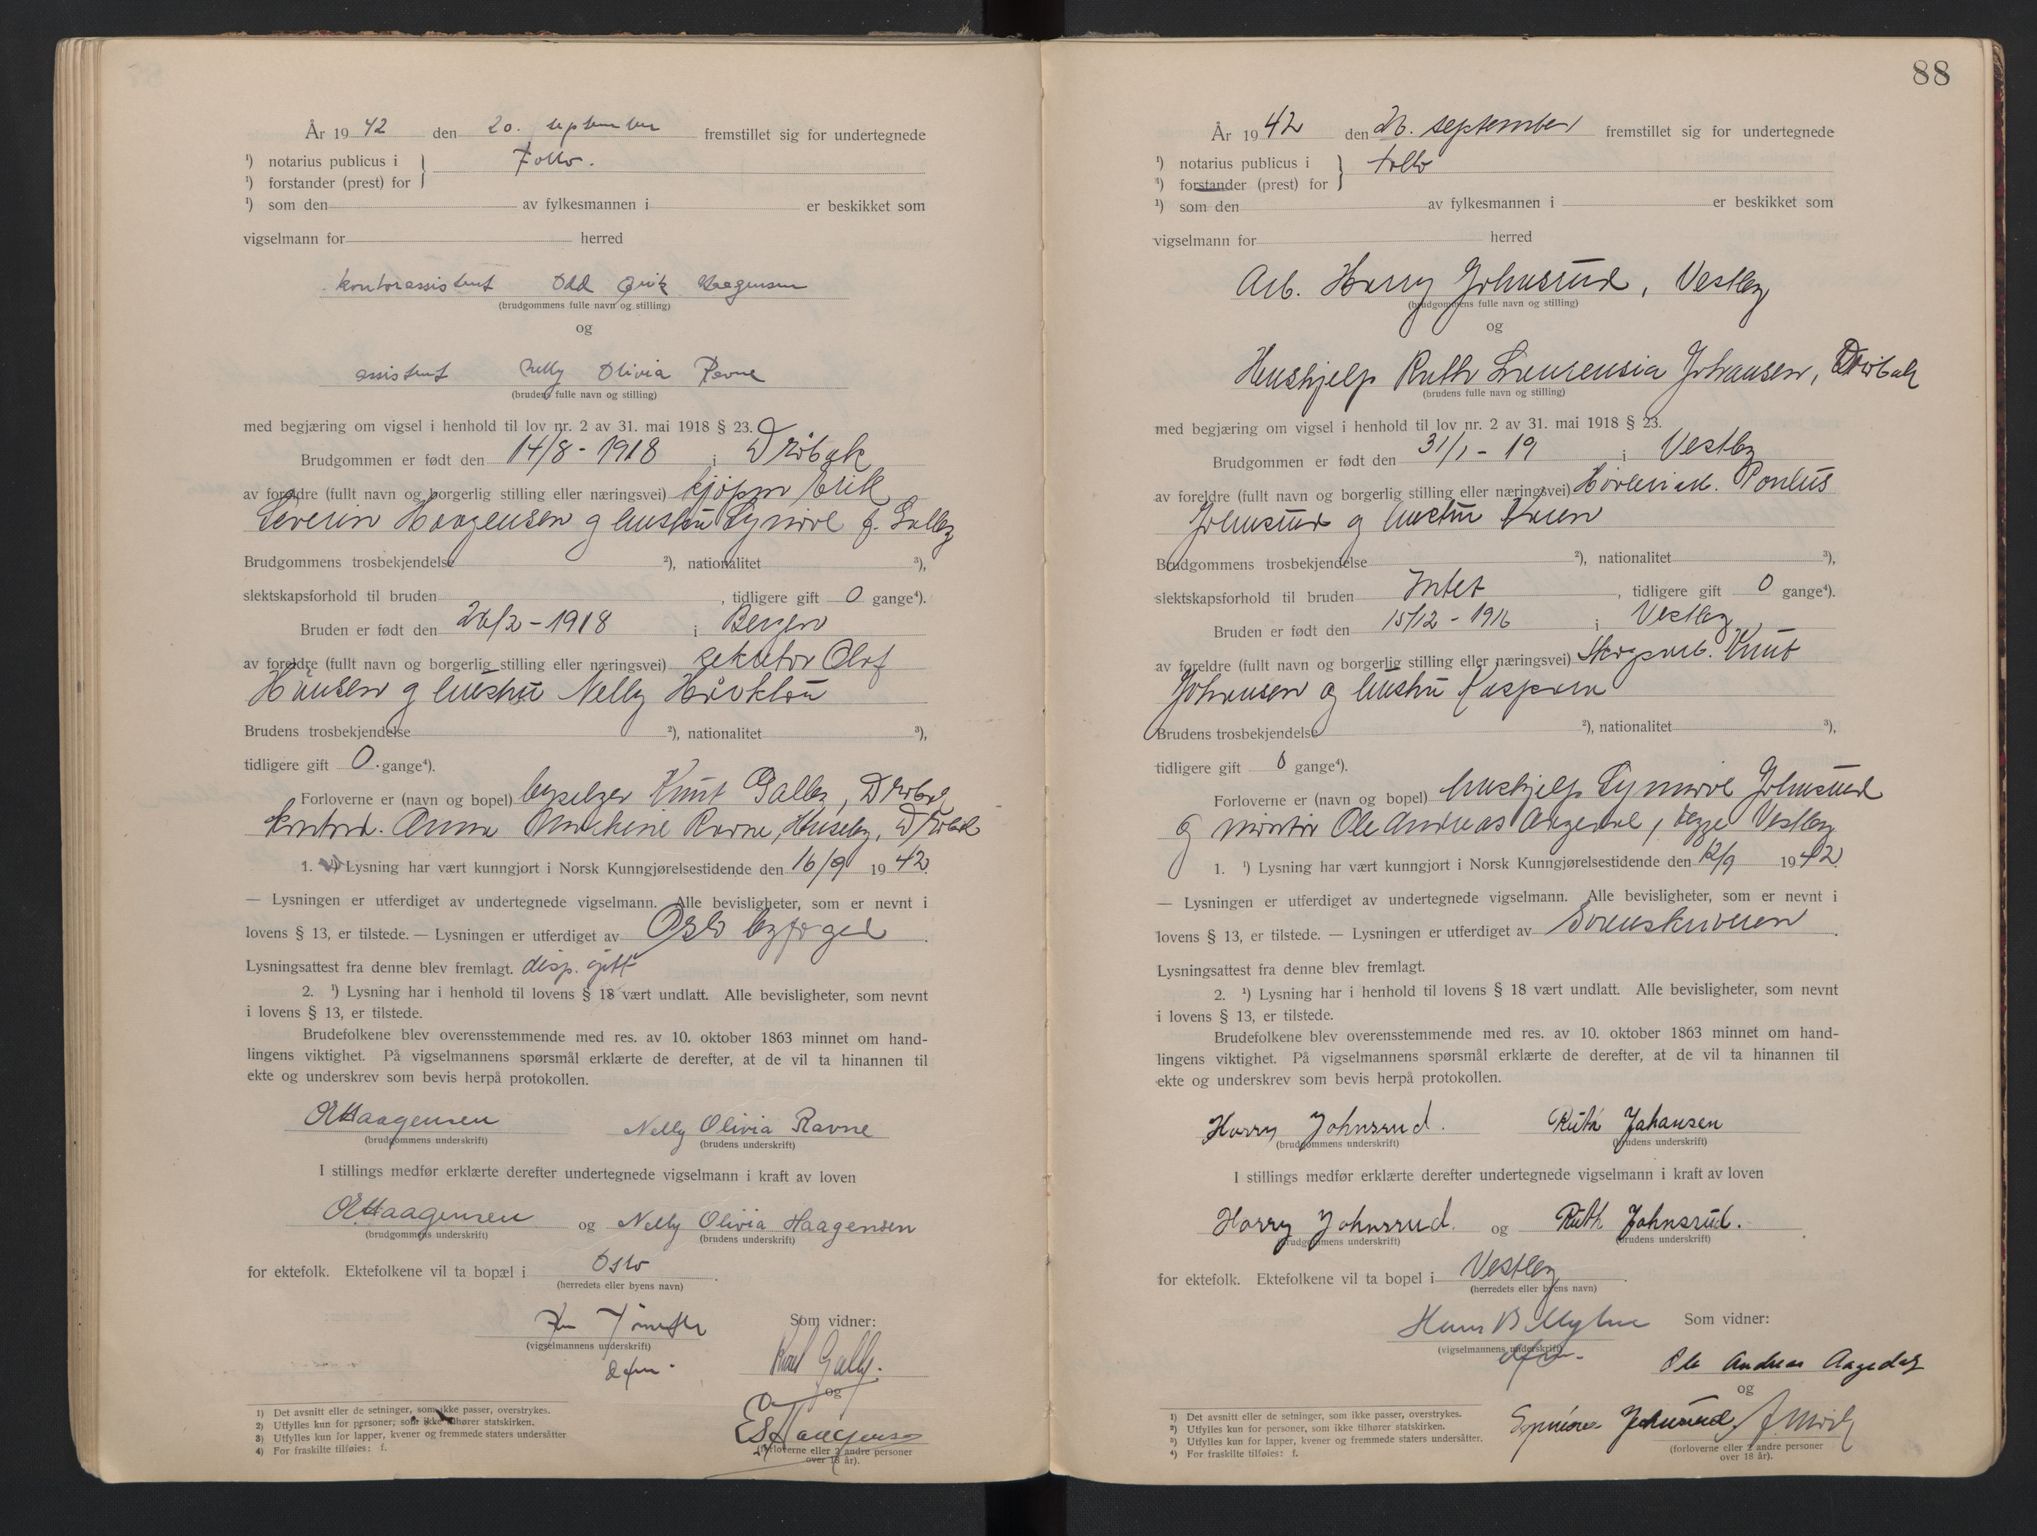 År 19 42 den 20. september fremstillet sig for undertegnede
¹) notarius publicus i
Follo.
¹) forstander (prest) for
¹) som den av fylkesmannen i er beskikket som
vigselmann for herred
kontorassistent Odd Erik Haagensen
(brudgommens fulle navn og stilling)
og
assistent Nelly Olivia Ravne
(brudens fulle navn og stilling)
med begjæring om vigsel i henhold til lov nr. 2 av 31. mai 1918 § 23.
Brudgommen er født den 14/8 - 1918 i Drøbak
av foreldre (fullt navn og borgerlig stilling eller næringsvei) kjøpm Erik
Severin Haagensen og hustru Synnøve f. Galby
Brudgommens trosbekjendelse ²), nationalitet ³),
slektskapsforhold til bruden , tidligere gift 0 gange⁴).
Bruden er født den 26/2 - 1918 i Bergen
av foreldre (fullt navn og borgerlig stilling eller næringsvei) Olaf
Hansen og hustru Nelly
Brudens trosbekjendelse ²), nationalitet ³),
tidligere gift 0. gange⁴).
Forloverne er (navn og bopel) Knut Galby, Drøbak
kontord. Anna Ravne, Huseby, Drøbak
1. ¹) Lysning har vært kunngjort i Norsk Kunngjørelsestidende den 16/9 1942.
— Lysningen er utferdiget av undertegnede vigselmann. Alle bevisligheter, som er nevnt i
lovens § 13, er tilstede. — Lysningen er utferdiget av Oslo byfoged.
Lysningsattest fra denne blev fremlagt. disp. gitt
2. ¹) Lysning har i henhold til lovens § 18 vært undlatt. Alle bevisligheter, som nevnt
i lovens § 13, er tilstede.
Brudefolkene blev overensstemmende med res. av 10. oktober 1863 minnet om hand-
lingens viktighet. På vigselmannens spørsmål erklærte de derefter, at de vil ta hinannen til
ekte og underskrev som bevis herpå protokollen.
OEHaagensen Nelly Olivia Ravne
(brudgommens underskrift) (brudens underskrift)
I stillings medfør erklærte derefter undertegnede vigselmann i kraft av loven
OEHaagensen og Nelly Olivia Haagensen
(brudgommens underskrift) (brudens underskrift)
for ektefolk. Ektefolkene vil ta bopæl i Oslo.
(herredets eller byens navn)
Som vidner:
(vigselmannens underskrift)
Knut Galby.
og
ESHaagensen
(forloverne eller 2 andre personer
over 18 år).
1) Det avsnitt eller de setninger, som ikke passer, overstrykes.
2) Utfylles kun for personer, som ikke tilhører statskirken.
3) Utfylles kun for lapper, kvener og fremmede staters undersåtter
4) For fraskilte tilføies: f.
88
År 19 42 den 26. september fremstillet sig for undertegnede
¹) notarius publicus i
Follo
¹) forstander (prest) for
¹) som den av fylkesmannen i er beskikket som
vigselmann for herred
Arb. Harry Johnsrud, Vestby
(brudgommens fulle navn og stilling)
og
Hushjelp Ruth Laurensia Johansen, Drøbak
(brudens fulle navn og stilling)
med begjæring om vigsel i henhold til lov nr. 2 av 31. mai 1918 § 23.
Brudgommen er født den 31/1 - 19 i Vestby
av foreldre (fullt navn og borgerlig stilling eller næringsvei) Pontus
Johnsrud og hustru Karen
Brudgommens trosbekjendelse ²), nationalitet ³),
slektskapsforhold til bruden Intet , tidligere gift 0 gange⁴).
Bruden er født den 15/12 - 1916 i Vestby
av foreldre (fullt navn og borgerlig stilling eller næringsvei) Skogsarb. Knut
Johansen og hustru Kaspara
Brudens trosbekjendelse ²), nationalitet ³),
tidligere gift 0 gange⁴).
Forloverne er (navn og bopel) hushjelp Synnøve Johnsrud
og montør Ole Andreas Aagedal, begge Vestby
1. ¹) Lysning har vært kunngjort i Norsk Kunngjørelsestidende den 12/9 1942.
— Lysningen er utferdiget av undertegnede vigselmann. Alle bevisligheter, som er nevnt i
lovens § 13, er tilstede. — Lysningen er utferdiget av Sorenskriveren.
Lysningsattest fra denne blev fremlagt.
2. ¹) Lysning har i henhold til lovens § 18 vært undlatt. Alle bevisligheter, som nevnt
i lovens § 13, er tilstede.
Brudefolkene blev overensstemmende med res. av 10. oktober 1863 minnet om hand-
lingens viktighet. På vigselmannens spørsmål erklærte de derefter, at de vil ta hinannen til
ekte og underskrev som bevis herpå protokollen.
Harry Johnsrud. Ruth Johansen
(brudgommens underskrift) (brudens underskrift)
I stillings medfør erklærte derefter undertegnede vigselmann i kraft av loven
Harry Johnsrud. og Ruth Johnsrud.
(brudgommens underskrift) (brudens underskrift)
for ektefolk. Ektefolkene vil ta bopel i Vestby.
(herredets eller byens navn)
Hans B Myhre Som vidner:
(vigselmannens underskrift)
Ole Andreas Aagedal
og
Synnøve Johnsrud
(forloverne eller 2 andre personer
over 18 år).
¹) Det avsnitt eller de setninger, som ikke passer, overstrykes.
²) Utfylles kun for personer, som ikke tilhører statskirken.
³) Utfylles kun for lapper, kvener og fremmede staters undersåtter.
⁴) For fraskilte tilføies: f.